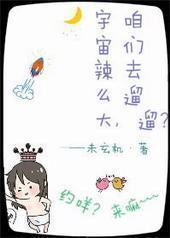 宇宙辣么大,
咱们去遛遛?
——未玄机·著
约咩? 来嘛~~